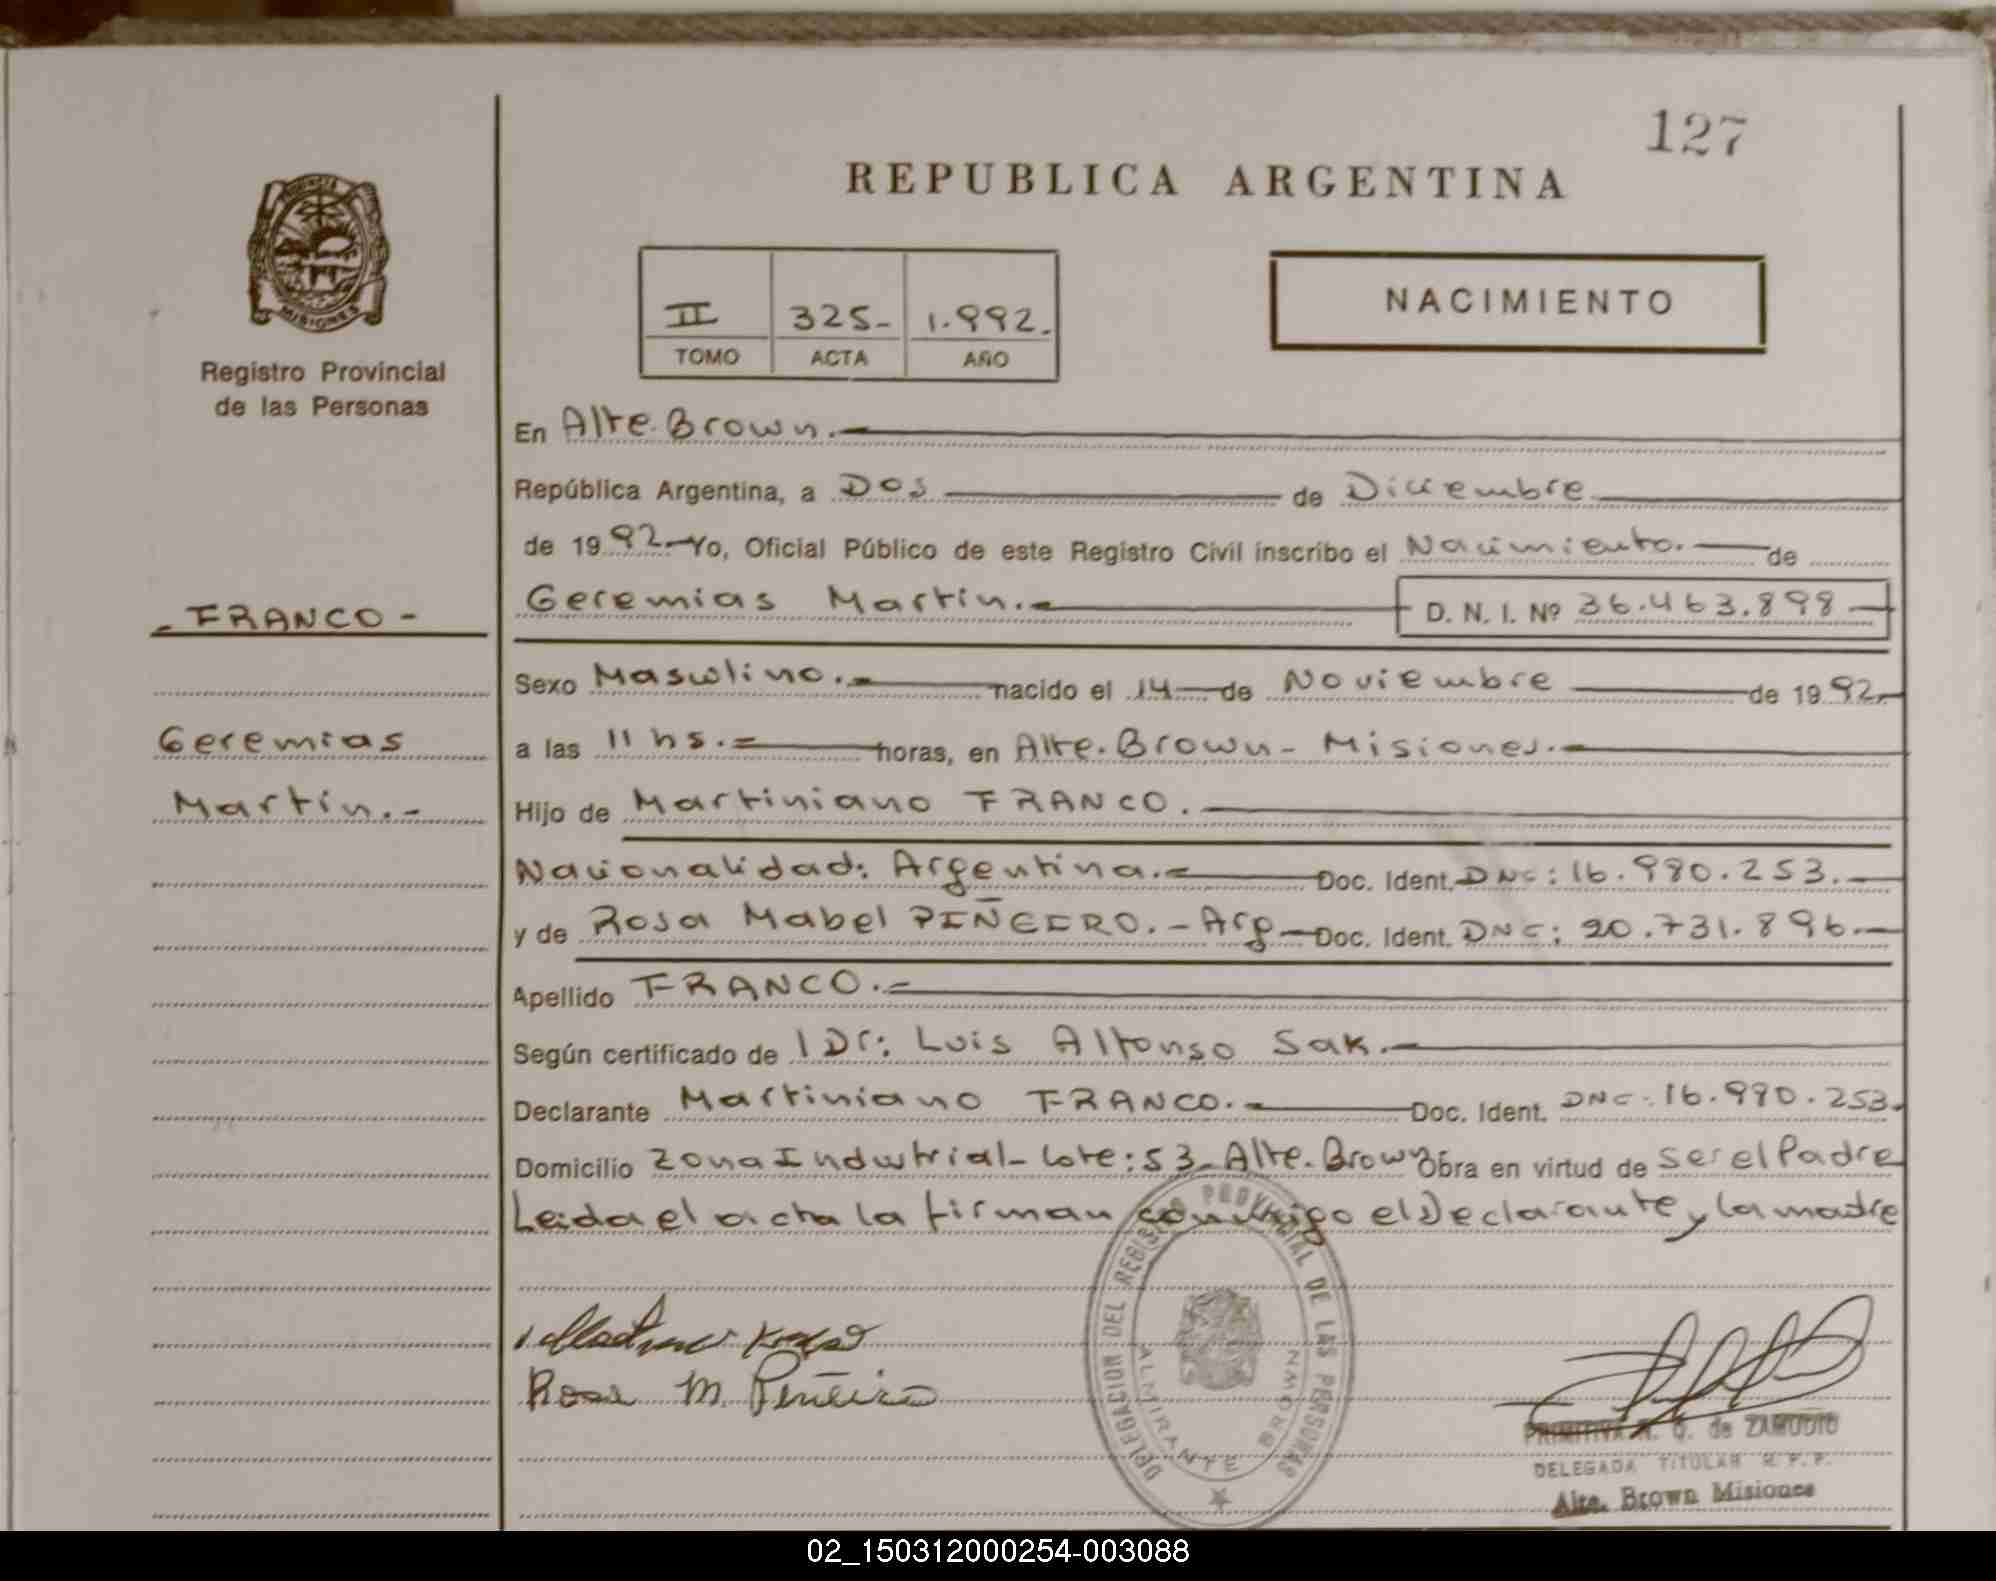 127
REPUBLICA ARGENTINA
MISIONES
Registro Provincial
de las Personas
II 325- 1.992.
TOMO ACTA AÑO
NACIMIENTO
En Alte. Brown.-
República Argentina, a Dos de Diciembre
de 1992.- Yo, Oficial Público de este Registro Civil inscribo el Nacimiento. de
Geremias Martin.- D. N. I. Nº 36.463.898
- FRANCO -
Sexo Masculino.- nacido el 14 de Noviembre de 1992.
Geremias
a las 11 hs.= horas, en Alte. Brown - Misiones.-
Martín.-
Hijo de Martiniano FRANCO.
Nacionalidad: Argentina.- Doc. Ident. DNI: 16.990.253.
y de Rosa Mabel PIÑEERO.- Arg Doc. Ident. DNI: 20.731.896.
Apellido FRANCO.-
Según certificado de 1 Dr: Luis Alfonso Sak.
Declarante Martiniano FRANCO. Doc. Ident. DNI: 16.990.253.
Domicilio Zona Industrial - Lote: 53 - Alte. Brown Obra en virtud de ser el Padre
Leida el acta la firman conmigo el Declarante y la madre
Rosa M. Piñeiro
DELEGACION DEL REGISTRO PROVINCIAL DE LAS PERSONAS
ALMIRANTE BROWN
PRIMITIVA de ZAMUDIO
DELEGADA TITULAR R.P.P.
Alte. Brown Misiones
02_150312000254-003088